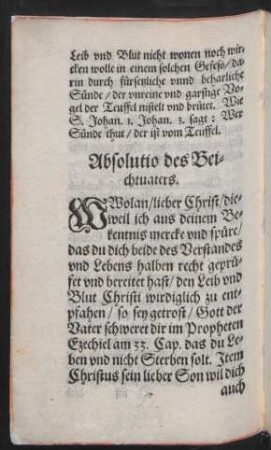 Leib vnd Blut nicht wonen noch wir-
cken wolle in einem solchen Gefeß/ da-
rin durch fürsetzliche vnnd beharliche
Sünde/ der vnreine vnd garstige Vo-
gel der Teuffel nistelt vnd brütet. Wie
S. Johan. 1. Johan. 3. sagt: Wer
Sünde thut/ der ist vom Teuffel.
Absolutio des Bei-
chtuaters.
WOlan/ lieber Christ/ die-
weil ich aus deinem Be-
kentnis mercke vnd spüre/
das du dich beide des Verstandes
vnd Lebens halben recht geprü-
fet vnd bereitet hast/ den Leib vnd
Blut Christi wirdiglich zu ent-
pfahen/ so sey getrost/ Gott der
Vater schweret dir im Propheten
Ezechiel am 33. Cap. das du Le-
ben vnd nicht Sterben solt. Item
Christus sein lieber Son wil dich
auch